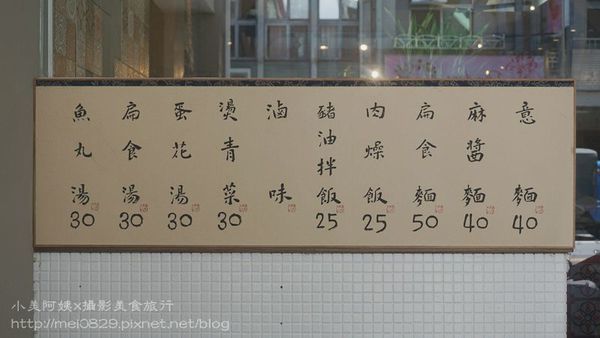 意麵 40
麻醬麵 40
扁食麵 50
肉燥飯 25
豬油拌飯 25
滷味
燙青菜 30
蛋花湯 30
扁食湯 30
魚丸湯 30
小美阿姨x攝影美食旅行
http://mei0829.pixnet.net/blog